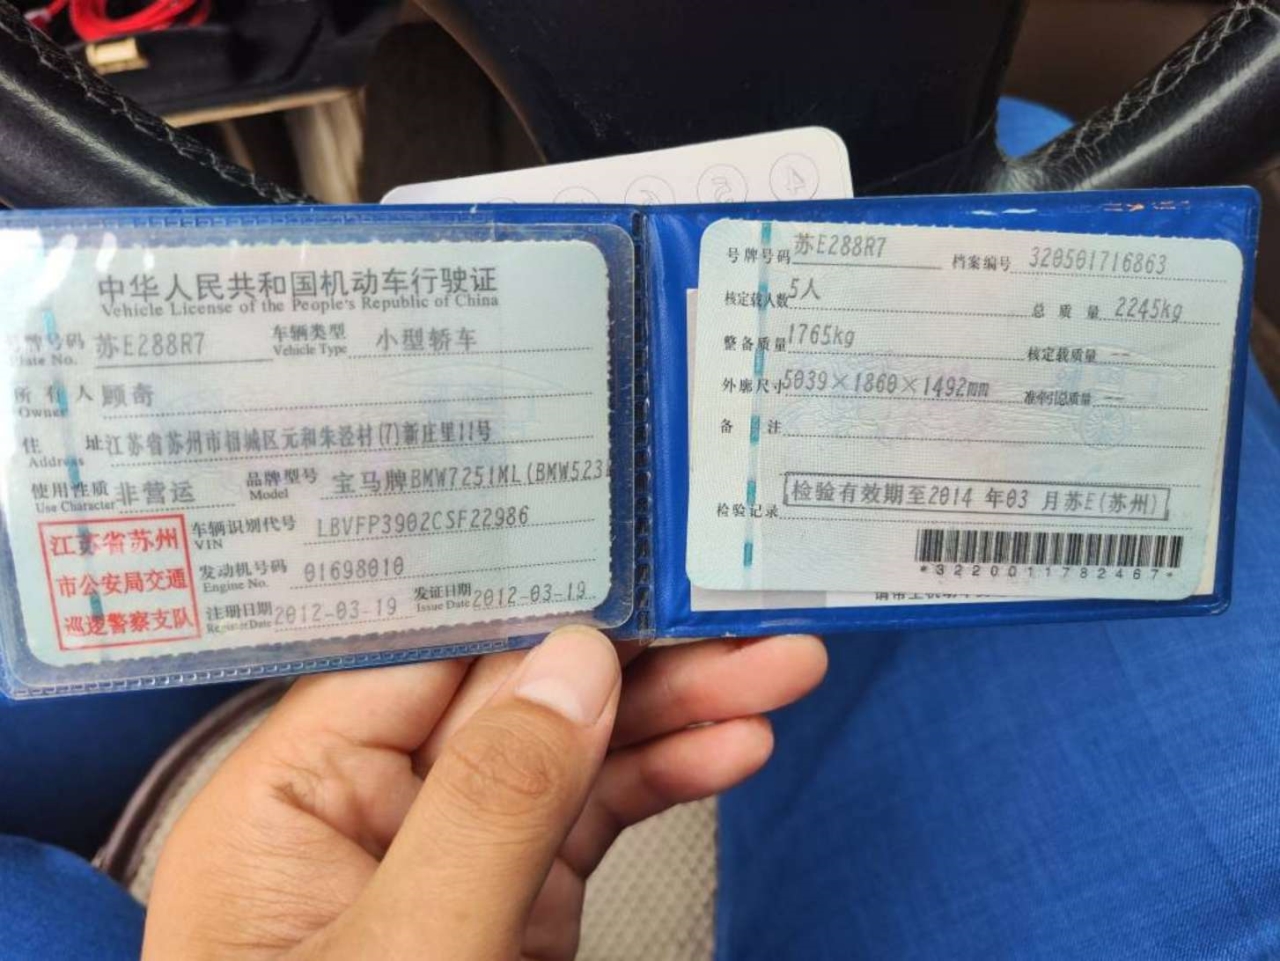 中华人民共和国机动车行驶证
Vehicle License of the People's Republic of China
号牌号码 苏E288R7 车辆类型 小型轿车
Plate No. Vehicle Type
所有人 顾奇
Owner
住址 江苏省苏州市相城区元和朱泾村(7)新庄里11号
Address
使用性质 非营运 品牌型号 宝马牌BMW7251ML(BMW523
Use Character Model
江苏省苏州
市公安局交通
巡逻警察支队
车辆识别代号 LBVFP3902CSF22986
VIN
发动机号码 01698010
Engine No.
注册日期 2012-03-19 发证日期 2012-03-19
Register Date Issue Date
号牌号码 苏E288R7 档案编号 320501716863
核定载人数 5人 总质量 2245kg
整备质量 1765kg 核定载质量 --
外廓尺寸 5039×1860×1492mm 准牵引总质量 --
备注
检验记录 检验有效期至2014年03月苏E(苏州)
*3220011782467*
4
5